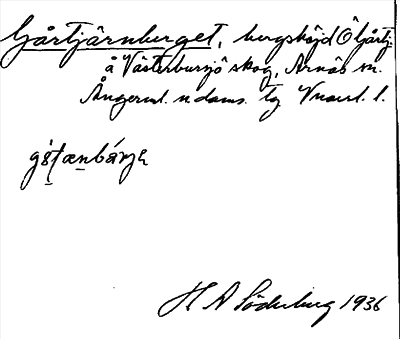 Gårtjärnberget, bergshöjd Ö Gårtj.
å Västerbursjö skog, Arnäs sn.
Ångerml. n doms. tg Vnorrl. l.
H A Söderberg 1936